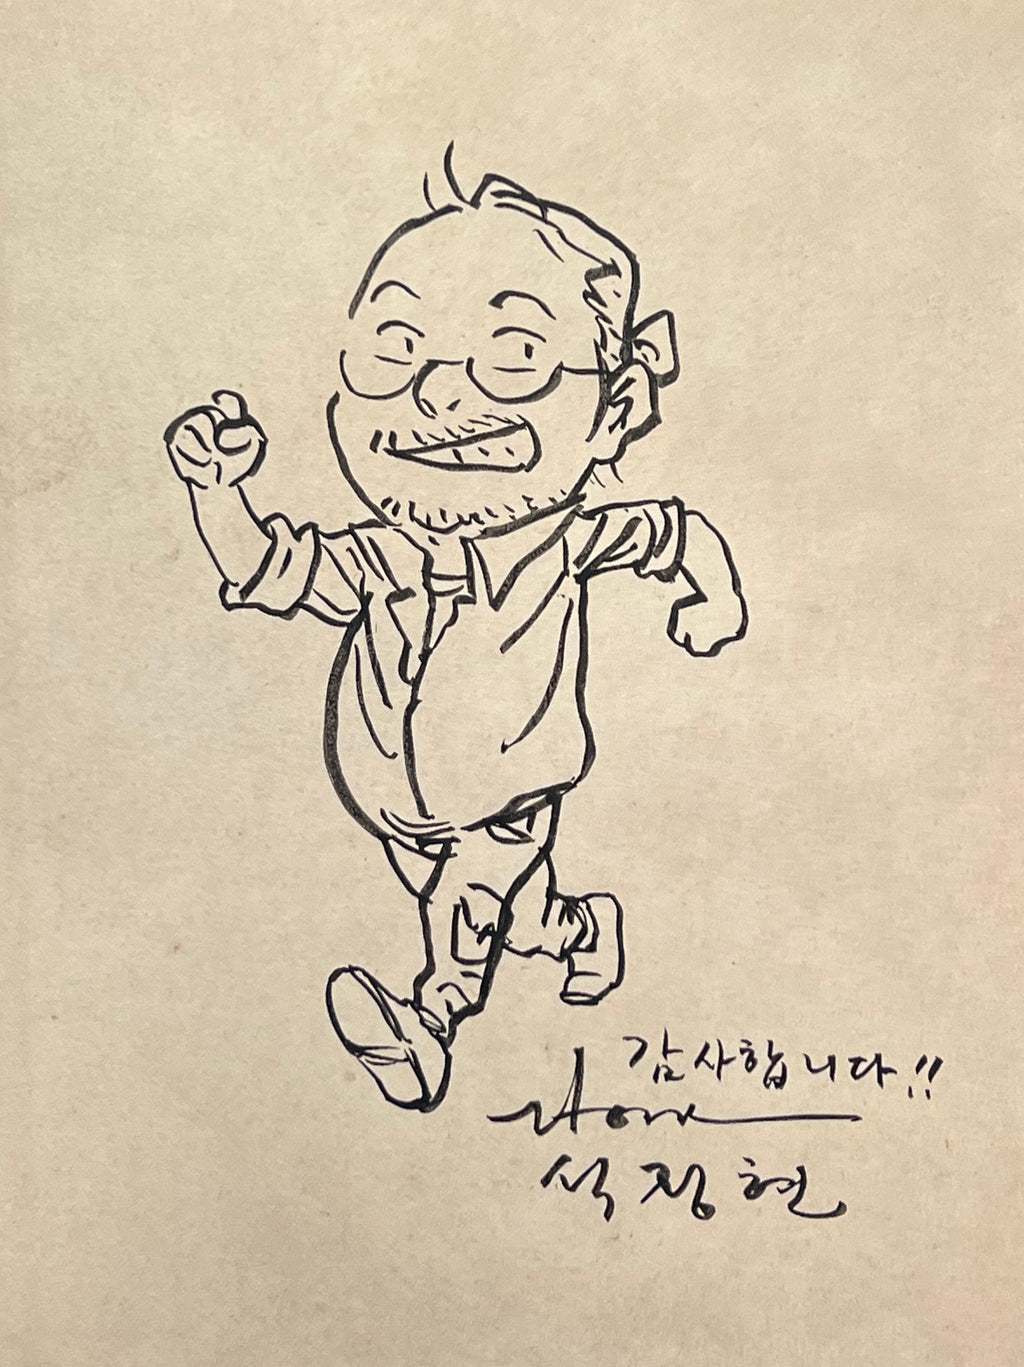 감사합니다!!
석정현